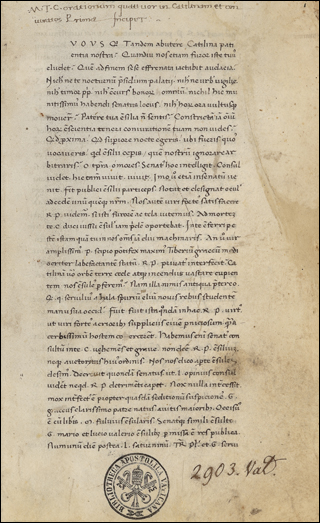 M. T. C. orationum quattuor in Catilinam et con
iuratos Prima Incipit
VOVS Q Tandem abutere Catilina pati
entia nostra? Quandiu nos etiam furor iste tuus
eludet? Quē ad finem sese effrenata iactabit audacia
Nichil ne te nocturnū presidium palatii nihil ne urbis uigilie
nihil timor ppli nihil cōcursus bonor omnium nichil hic mu
nitissimus habendi senatus locus nihil horum ora uultusq
mouerunt Patere tua cōsilia nō sentis? Constrictā iā oīum
horum cōscientia teneri coniurationē tuam non uides?
Quid proxima quid superiore nocte egeris ubi fueris quos
uocaueris quid cōsilii ceperis quem nostrum ignorare ar
bitraris O tempora o mores Senatus hoc intelligit Consul
uidet hic tamen uiuit uiuit Imo uero etiā in senatum ue
nit fit publici cōsilii particeps Notat et designat oculis
ad cedē unum quēq nostrum Nos autē uiri fortes satisfacere
R. P. uidemur si isti furorem ac tela uitemus Ad mortem
te C. duci iussu cōsulis iam pridē oportebat In te cōferri pe
stē istam quā tu in nos omnes iā diu machinaris An uir
amplissimus P. scipio pontifex maximus Tiberiū graccum medi
ocriter labefactantē statum R. P. priuatus interfecit Ca
tilinam uero orbē terre cede atq incendiis uastare cupien
tem nos cōsules perferemus Nam illa nimis antiqua pretereo
Q. q. seruilius ahala spurium melium nouis rebus studente
manu sua occidit Fuit fuit ista quondā in hac R. P. uirtus
ut uiri fortes acrioribus suppliciis ciuem perniciosum quā
acerbissimum hostem coercerent Habemus enim senatus con
sultum in te C. uehemens et graue non deest R. P. cōsilium
neq auctoritas huius ordinis Nos nos dico aperte cōsules
desumus Decreuit quondā senatus ut L. opimius consul
uideret nequid R. P. detrimenti caperet Nox nulla intercessit
interfectus est propter quasdā seditionum suspiciones G.
graccus clarissimo patre natus auis maioribus Occisus
est cū liberis M. fuluius cōsularis Senatus simili cōsulto
G. mario et lucio ualerio cōsulibus permissa est res publica
Num unum diē postea L. saturninum TR. Pl. et G. serui
2903. Vat.
BIBLIOTHECA APOSTOLICA VATICANA